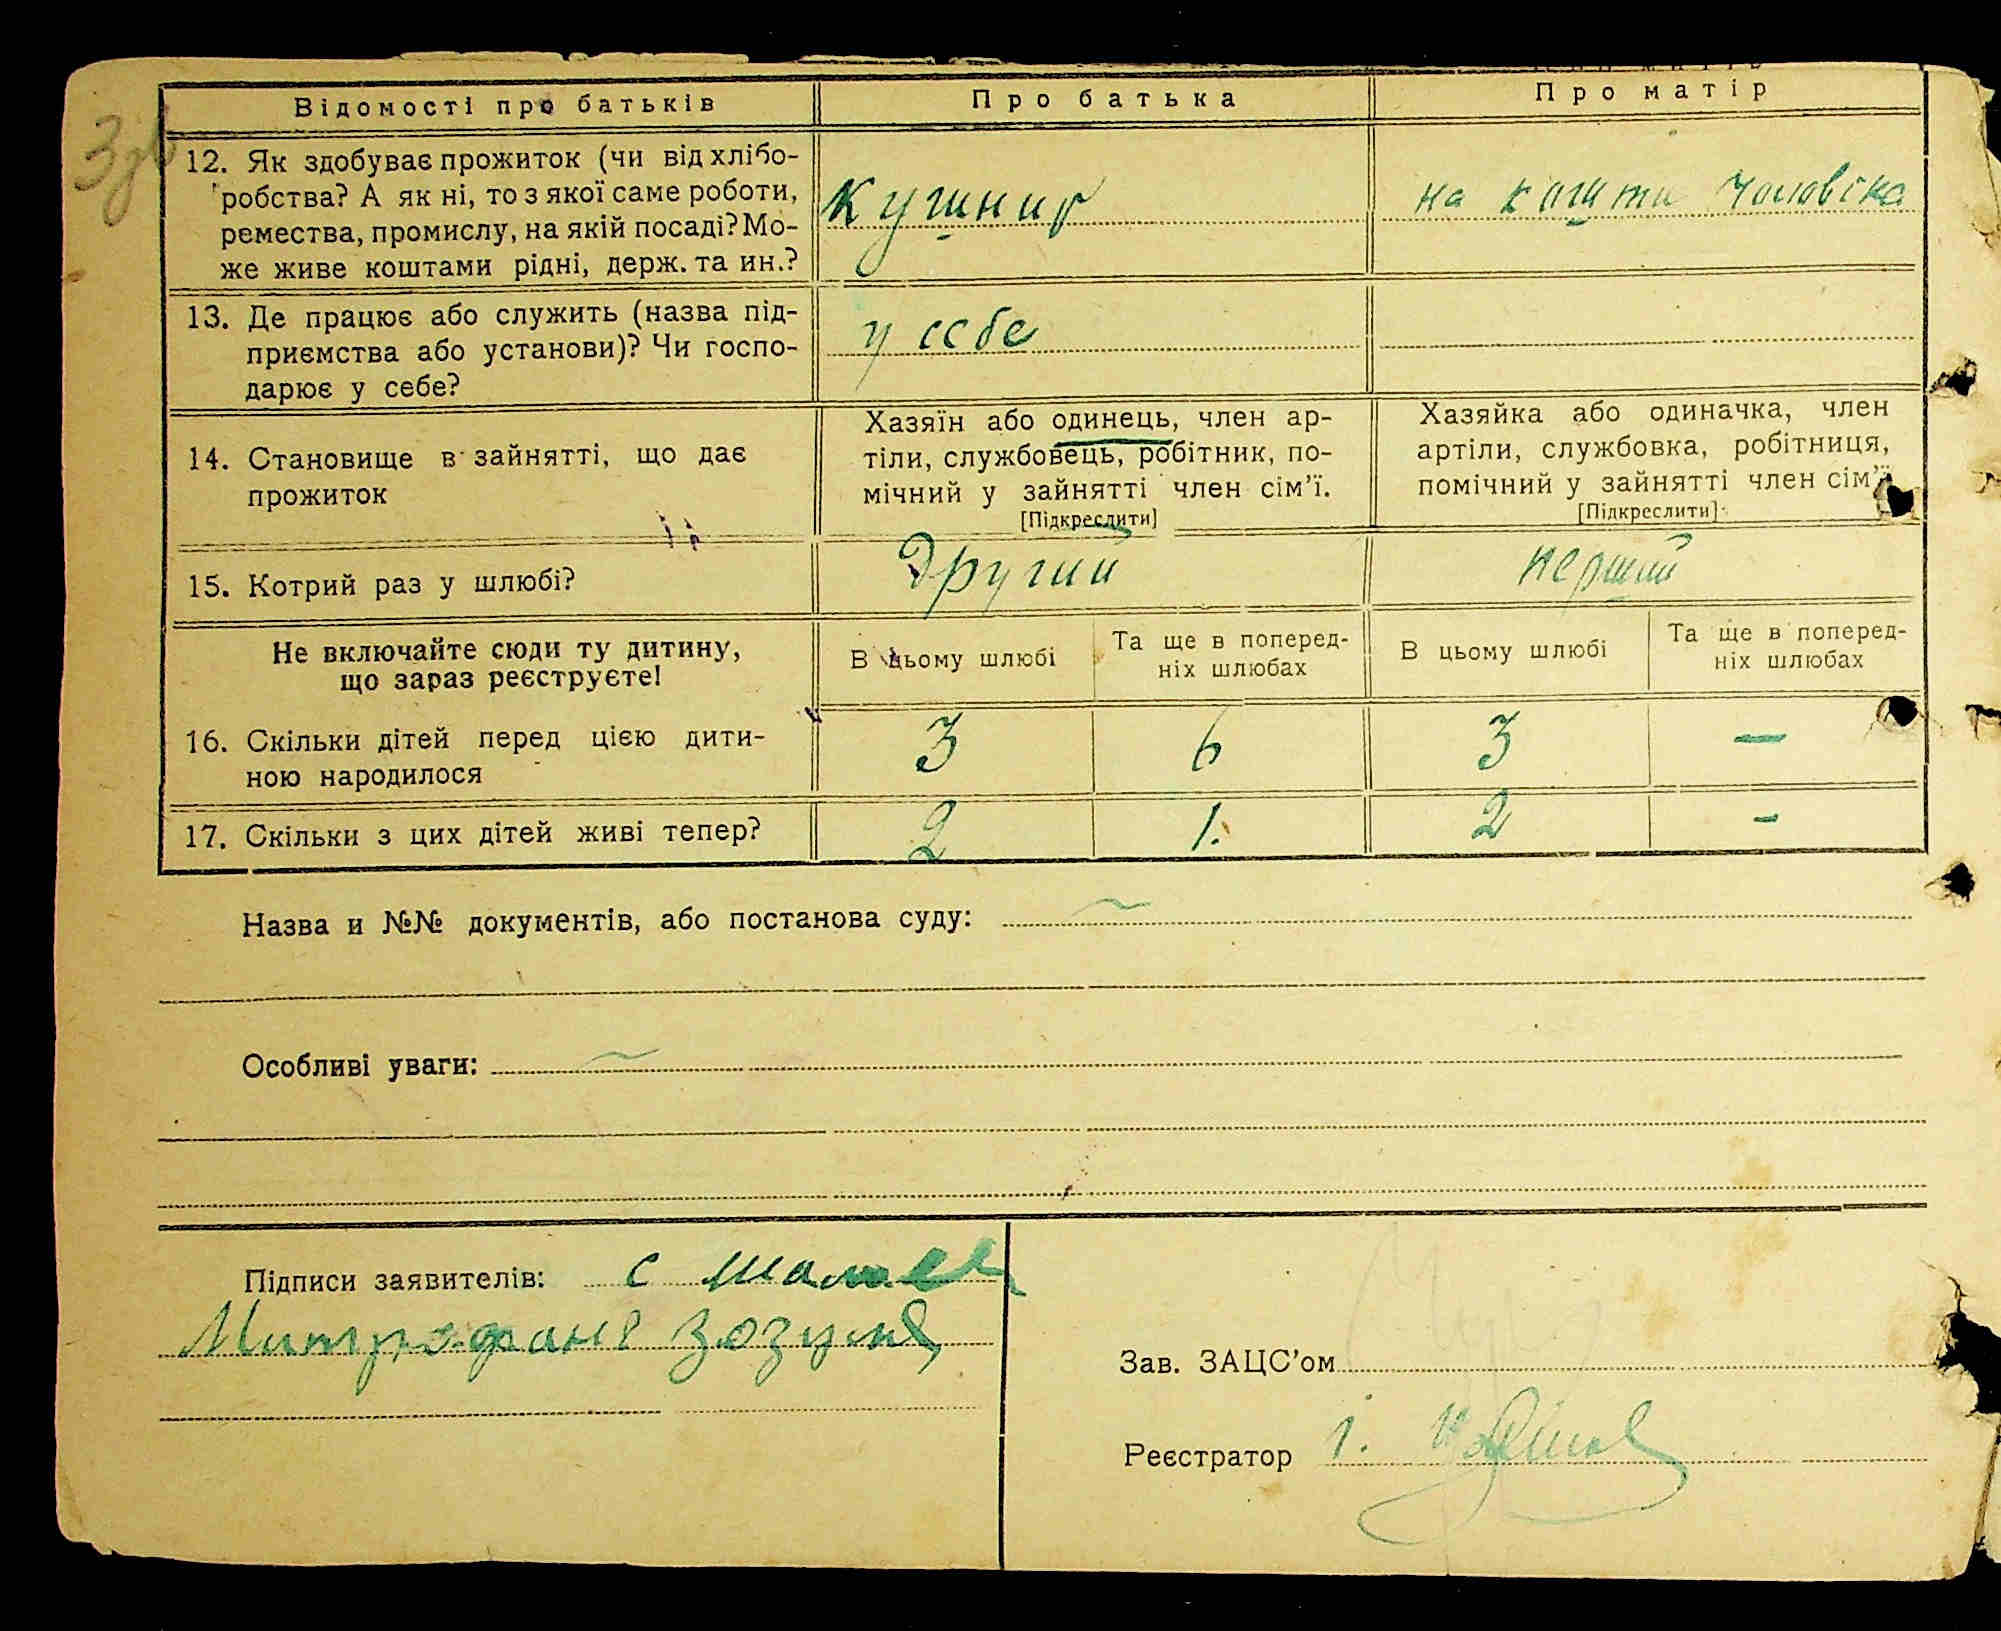 3зв
Відомості про батьків Про батька Про матір
12. Як здобуває прожиток (чи від хлібо-
робства? А як ні, то з якої саме роботи,
ремества, промислу, на якій посаді? Мо-
же живе коштами рідні, держ. та ин.?
кушнир на кошти чоловіка
13. Де працює або служить (назва під-
приємства або установи)? Чи госпо-
дарює у себе?
у себе
14. Становище в зайнятті, що дає
прожиток
Хазяїн або одинець, член ар-
тіли, службовець, робітник, по-
мічний у зайнятті член сім'ї.
[Підкреслити]
Хазяйка або одиначка, член
артіли, службовка, робітниця,
помічний у зайнятті член сім'ї
[Підкреслити]
15. Котрий раз у шлюбі? другий перший
Не включайте сюди ту дитину,
що зараз реєструєте!
В цьому шлюбі
Та ще в поперед-
ніх шлюбах
В цьому шлюбі
Та ще в поперед-
ніх шлюбах
16. Скільки дітей перед цією дити-
ною народилося
3 6 3 —
17. Скільки з цих дітей живі тепер? 2 1. 2 -
Назва и №№ документів, або постанова суду: ~
Особливі уваги: ~
Підписи заявителів: с
Митрофанъ Зозуля
Зав. ЗАЦС'ом
Реєстратор І.